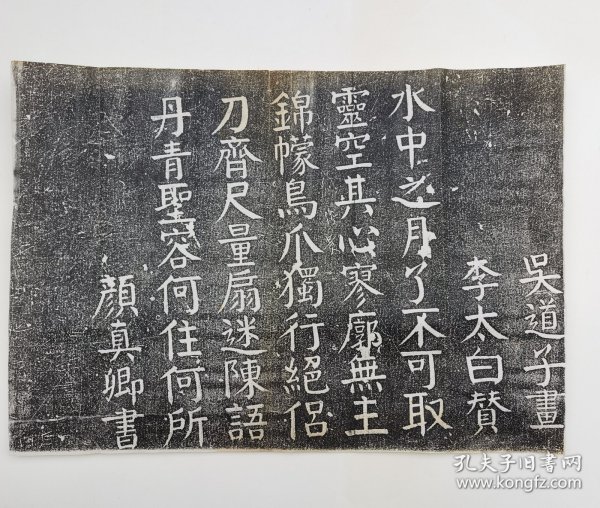 吳道子畫
李太白贊
水中之月了不可取
靈空其心寥廓無主
錦幪鳥爪獨行絕侶
刀齊尺量扇迷陳語
丹青聖容何住何所
顏真卿書
孔夫子旧书网
www.kongfz.com